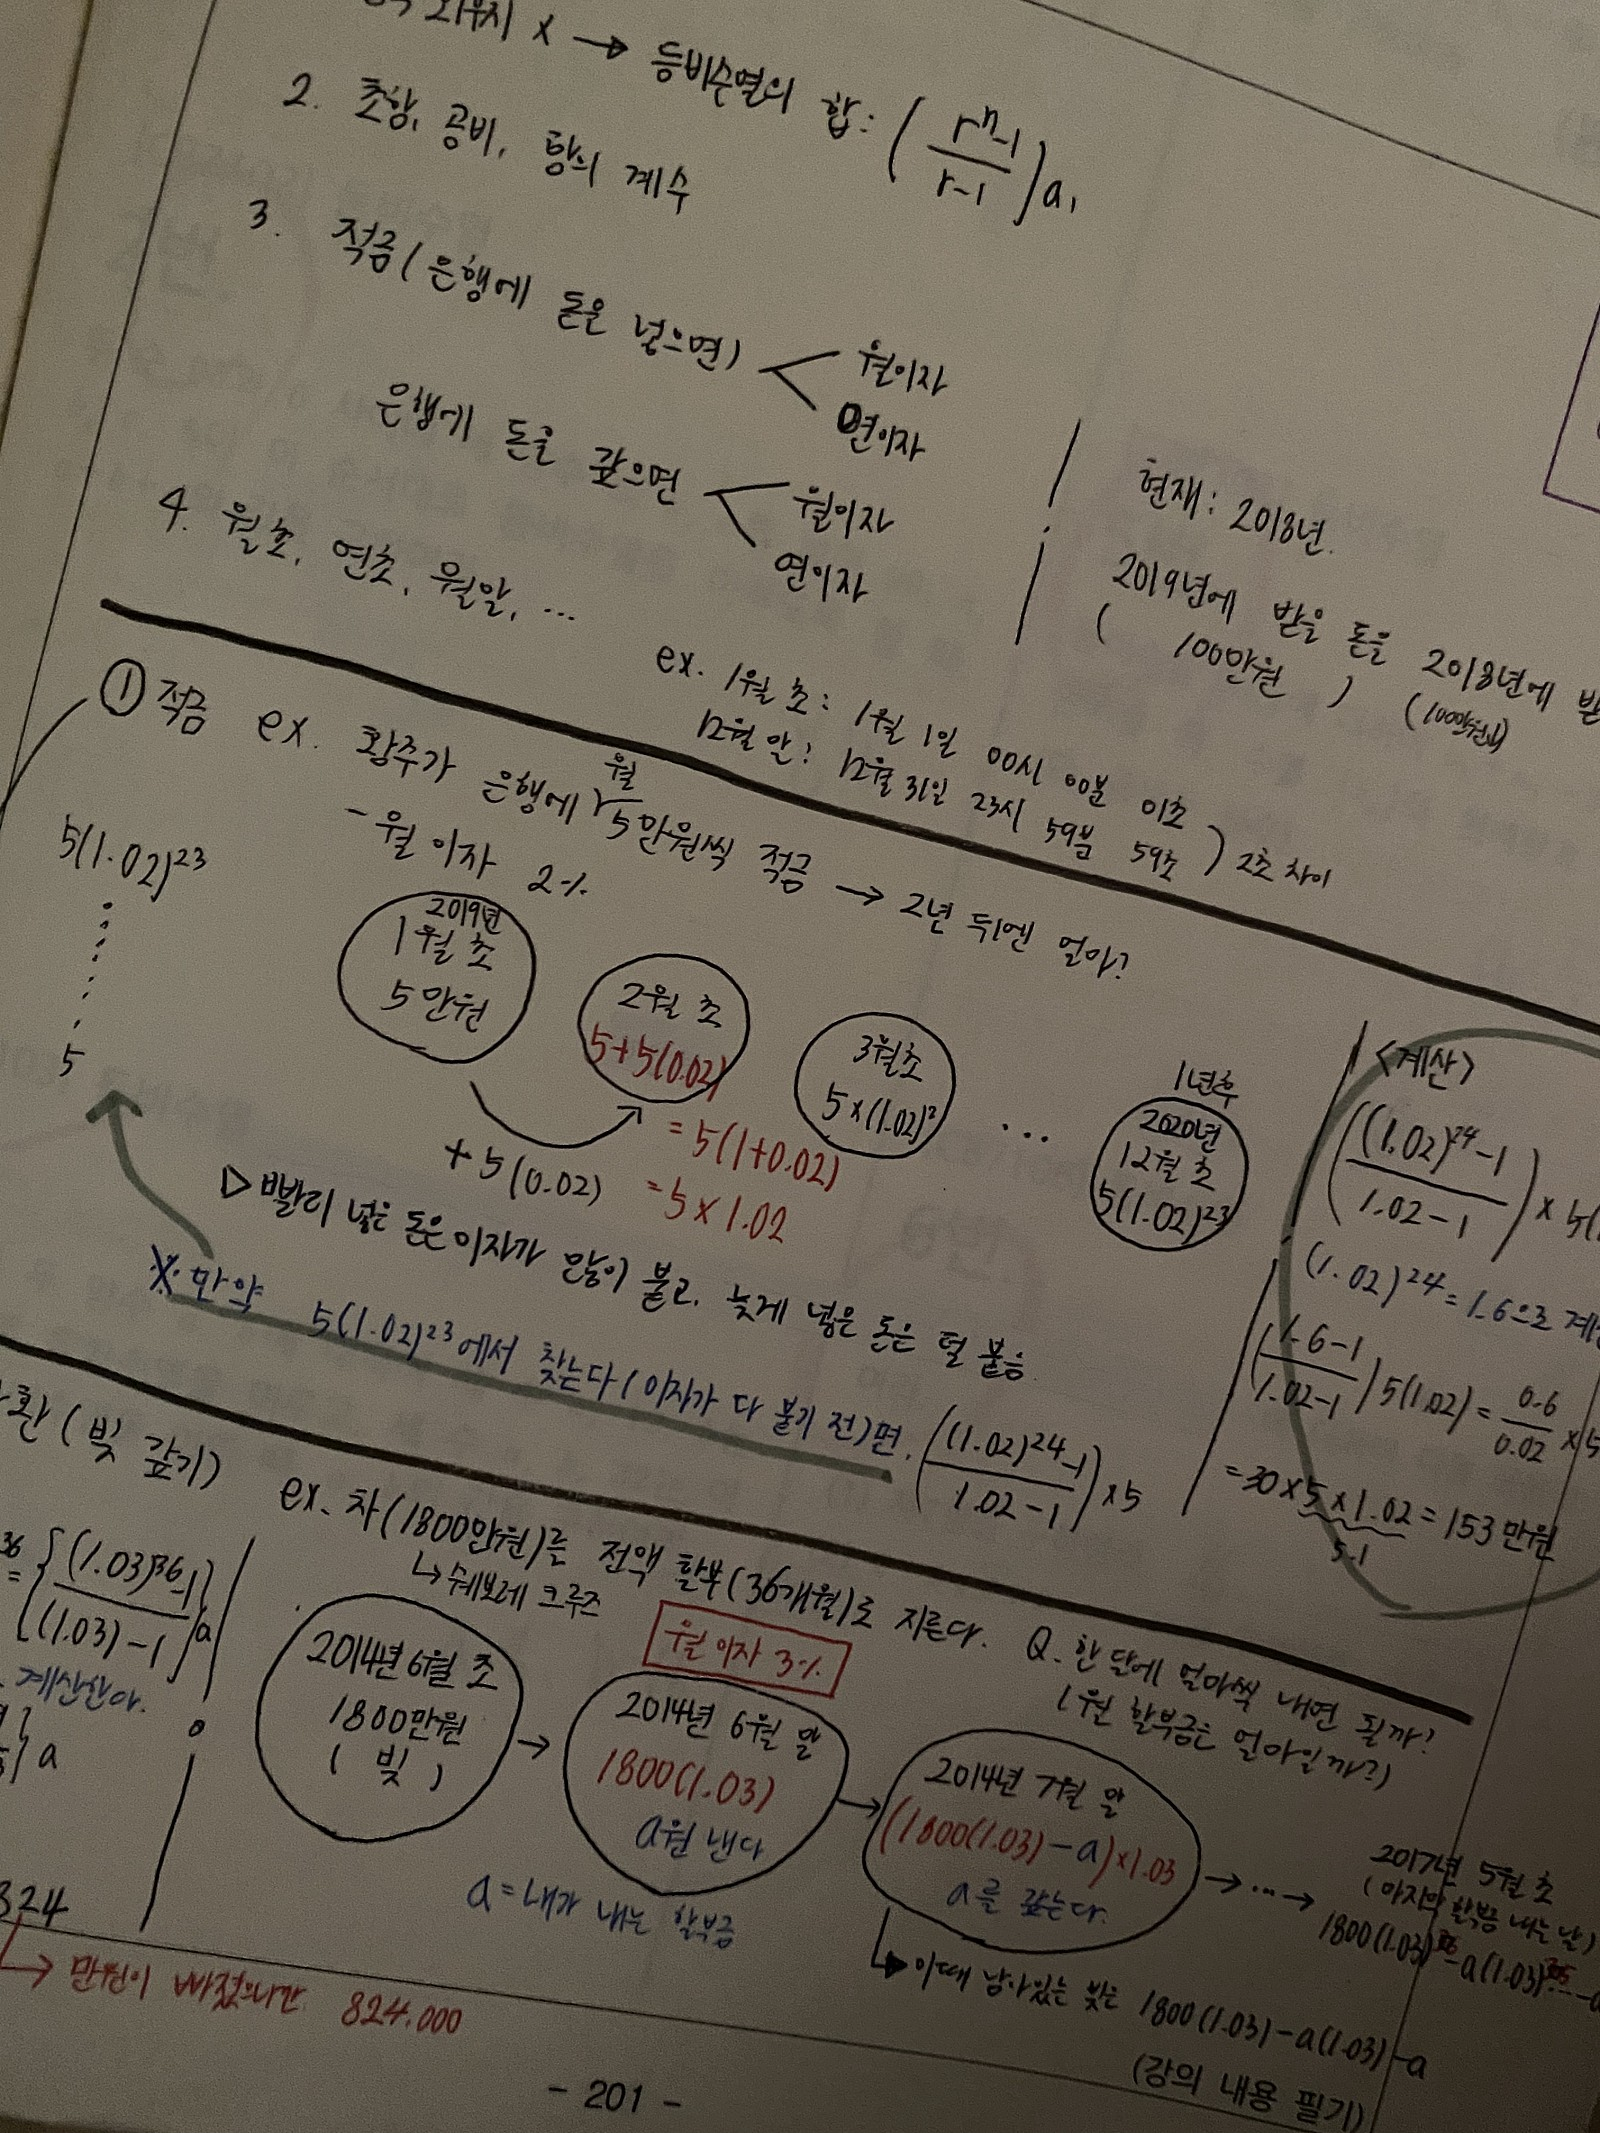 x → 등비수열의 합: ( rⁿ-1 / r-1 ) a₁
2. 초항, 공비, 항의 계수
3. 적금 ( 은행에 돈을 넣으면 ) < 월이자
연이자
은행에 돈을 갚으면 < 월이자
연이자
4. 월초, 연초, 월말, ...
ex. 1월 초: 1월 1일 00시 00분 01초
12월 말: 12월 31일 23시 59분 59초 ) 2초 차이
현재: 2018년.
2019년에 받을 돈을 2018년에
( 100만원 )
① 적금 ex. 황주가 은행에 월 5만원씩 적금 → 2년 뒤엔 얼마?
- 월 이자 2%
5(1.02)²³
5
2019년
1월 초
5만원
2월 초
5+5(0.02)
= 5(1+0.02)
= 5×1.02
+5(0.02)
3월초
5×(1.02)²
...
1년후
2020년
12월 초
5(1.02)²³
▷ 빨리 넣은 돈은 이자가 많이 붙고, 늦게 넣은 돈은 덜 붙음.
※ 만약 5(1.02)²³에서 찾는다(이자가 다 붙기 전)면, ( (1.02)²⁴-1 / 1.02-1 ) ×5
<계산>
( (1.02)²⁴-1 / 1.02-1 ) ×
(1.02)²⁴=1.6으로
( 1.6-1 / 1.02-1 ) 5(1.02) = 0.6 / 0.02 ×5
=30×5×1.02=153만원
5.1
환 (빚 갚기)
36
= { (1.03)³⁶-1 / (1.03)-1 } a
계산한다.
} a
324
→ 만원이 빠졌으니깐 824.000
ex. 차(1800만원)를 전액 할부(36개월)로 지른다. Q. 한 달에 얼마씩 내면 될까?
↳ 쉐보레 크루즈
1월 할부금은 얼마일까?)
월 이자 3%
2014년 6월 초
1800만원
( 빚 )
→
2014년 6월 말
1800(1.03)
a원 낸다
→
2014년 7월 말
(1800(1.03)-a)×1.03
a를 갚는다.
→ ... →
2017년 5월 초
(마지막 할부금 내는 날)
1800(1.03)³⁶-a(1.03)³⁵...-a
a=내가 내는 할부금
↳ 이때 남아있는 빚은 1800(1.03)-a(1.03)-a
(강의 내용 필기)
- 201 -